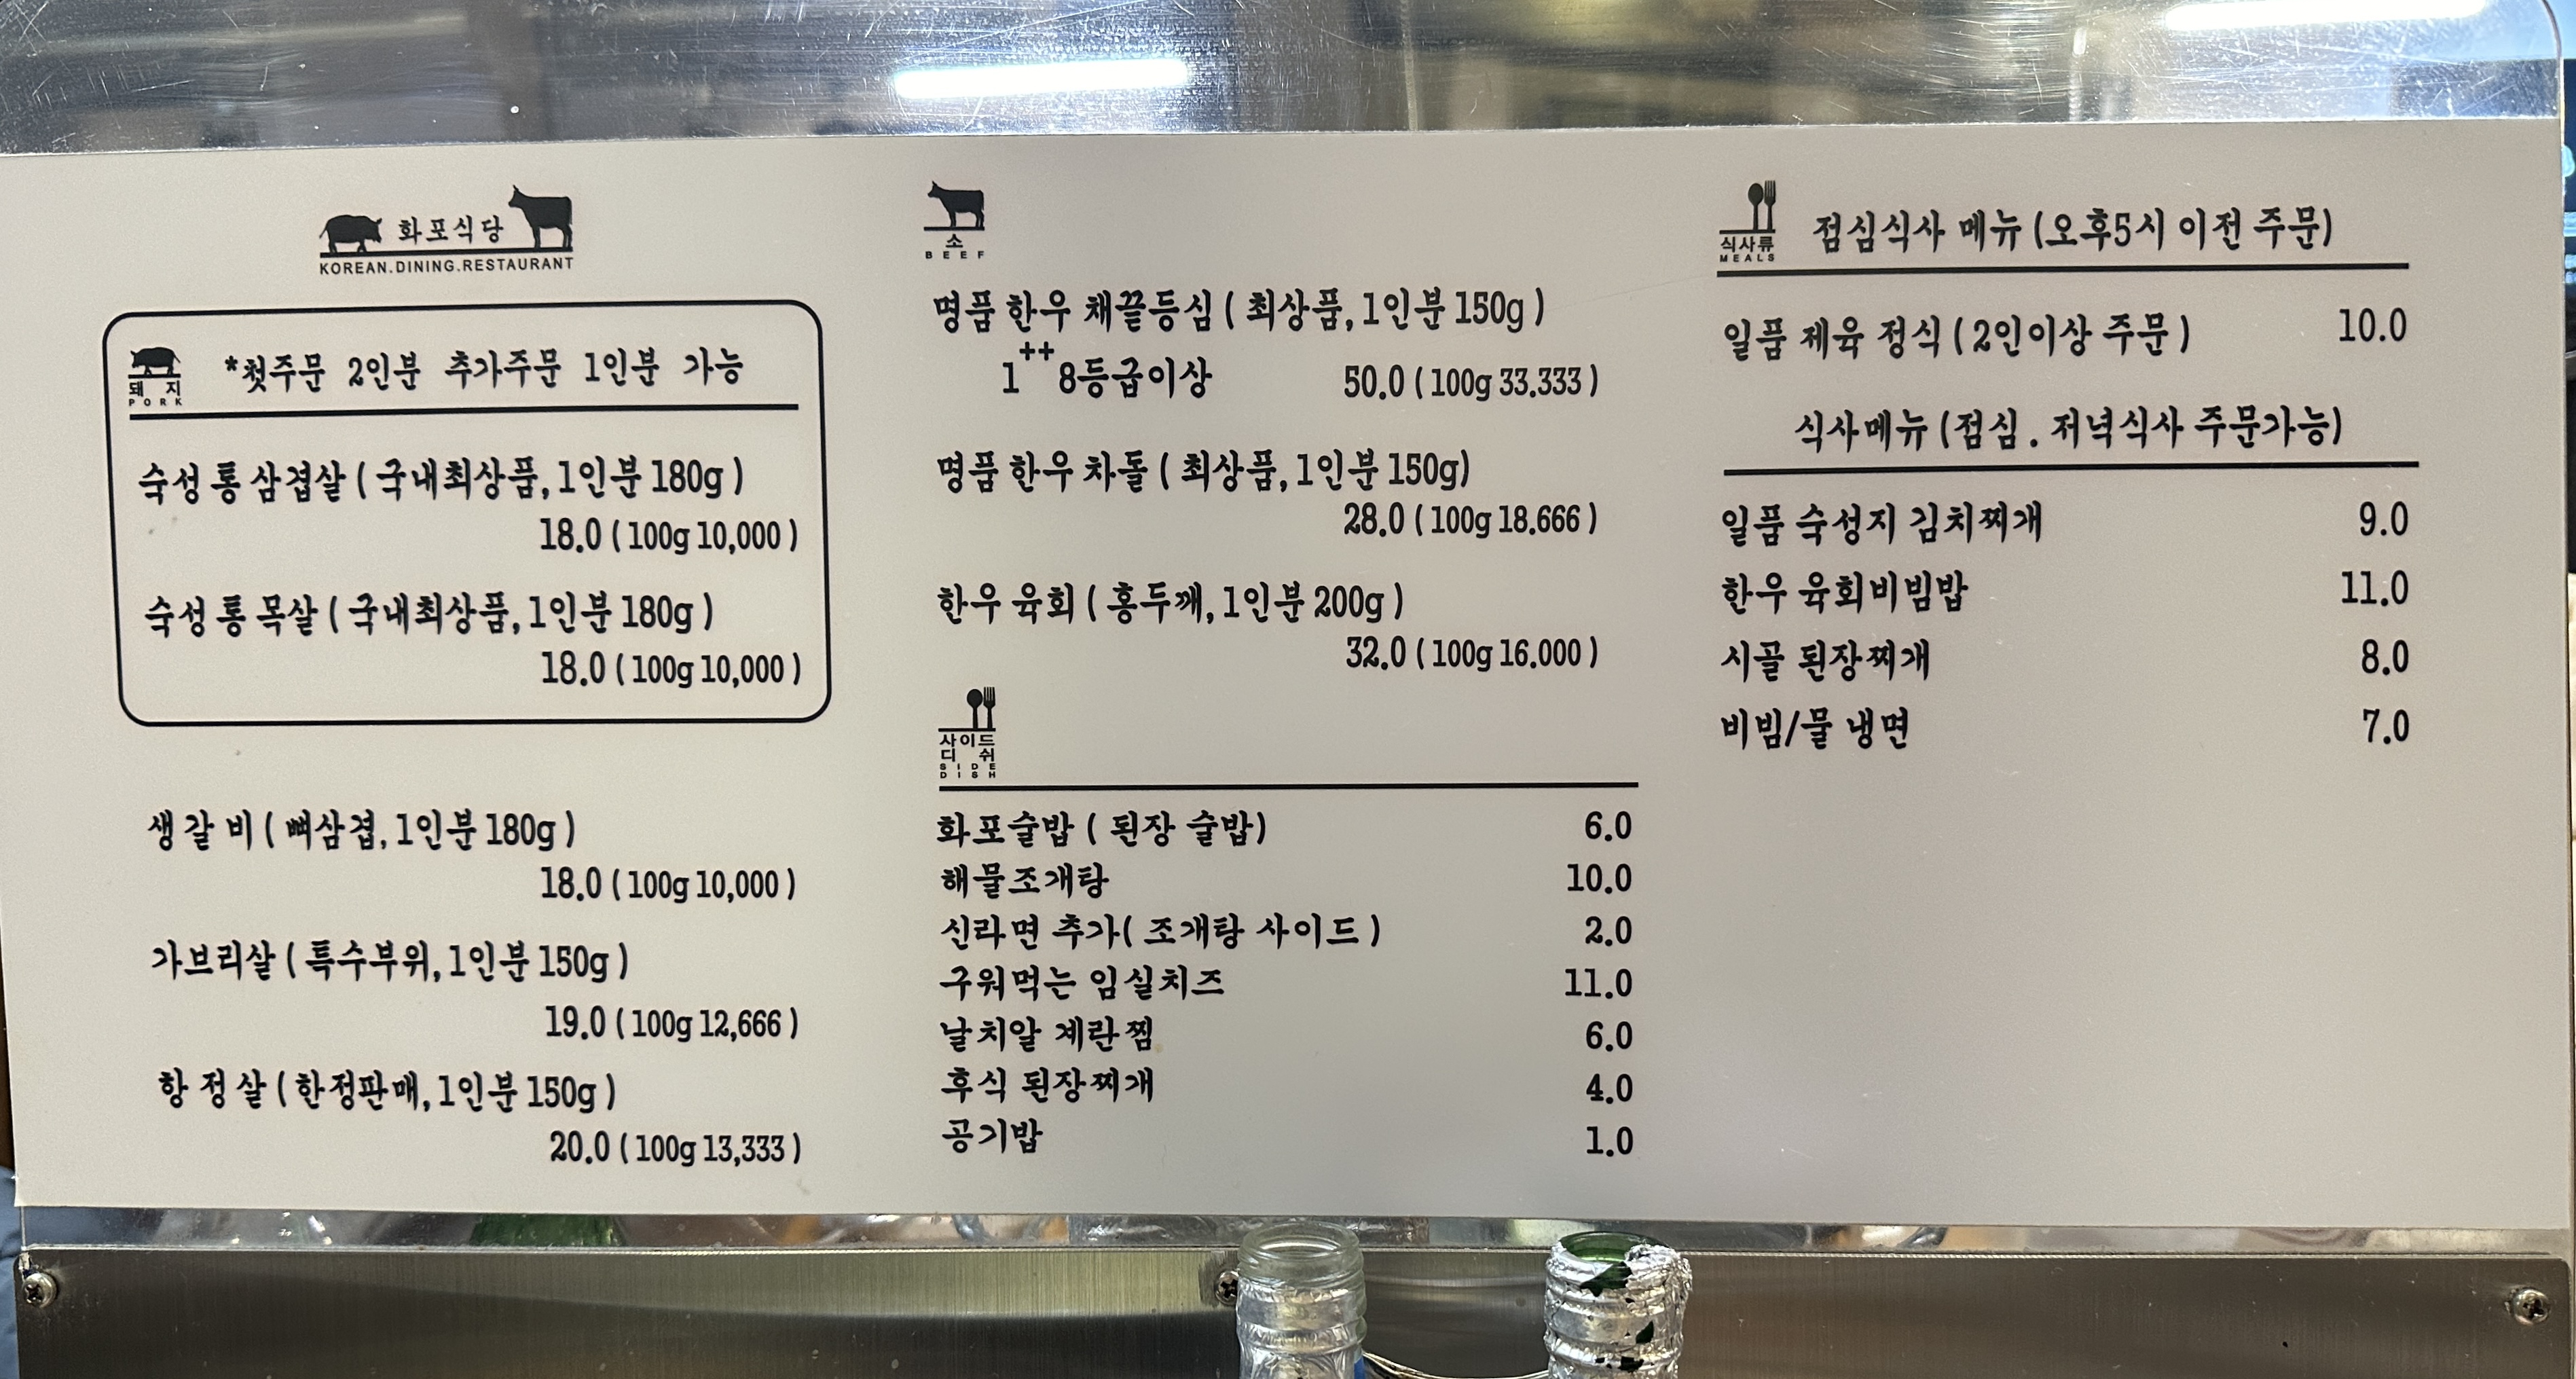 화포식당
KOREAN.DINING.RESTAURANT
돼 지
PORK
*첫주문 2인분 추가주문 1인분 가능
숙성 통 삼겹살 ( 국내최상품, 1인분 180g )
18.0 ( 100g 10,000 )
숙성 통 목살 ( 국내최상품, 1인분 180g )
18.0 ( 100g 10,000 )
생 갈 비 ( 뼈삼겹, 1인분 180g )
18.0 ( 100g 10,000 )
가브리살 ( 특수부위, 1인분 150g )
19.0 ( 100g 12,666 )
항 정 살 ( 한정판매, 1인분 150g )
20.0 ( 100g 13,333 )
소
BEEF
명품 한우 채끝등심 ( 최상품, 1인분 150g )
1++ 8등급이상 50.0 ( 100g 33.333 )
명품 한우 차돌 ( 최상품, 1인분 150g)
28.0 ( 100g 18.666 )
한우 육회 ( 홍두깨, 1인분 200g )
32.0 ( 100g 16.000 )
사이드
디 쉬
SIDE
DISH
화포술밥 ( 된장 술밥) 6.0
해물조개탕 10.0
신라면 추가( 조개탕 사이드 ) 2.0
구워먹는 임실치즈 11.0
날치알 계란찜 6.0
후식 된장찌개 4.0
공기밥 1.0
식사류
MEALS
점심식사 메뉴 (오후5시 이전 주문)
일품 제육 정식 ( 2인이상 주문 ) 10.0
식사메뉴 (점심 . 저녁식사 주문가능)
일품 숙성지 김치찌개 9.0
한우 육회비빔밥 11.0
시골 된장찌개 8.0
비빔/물 냉면 7.0